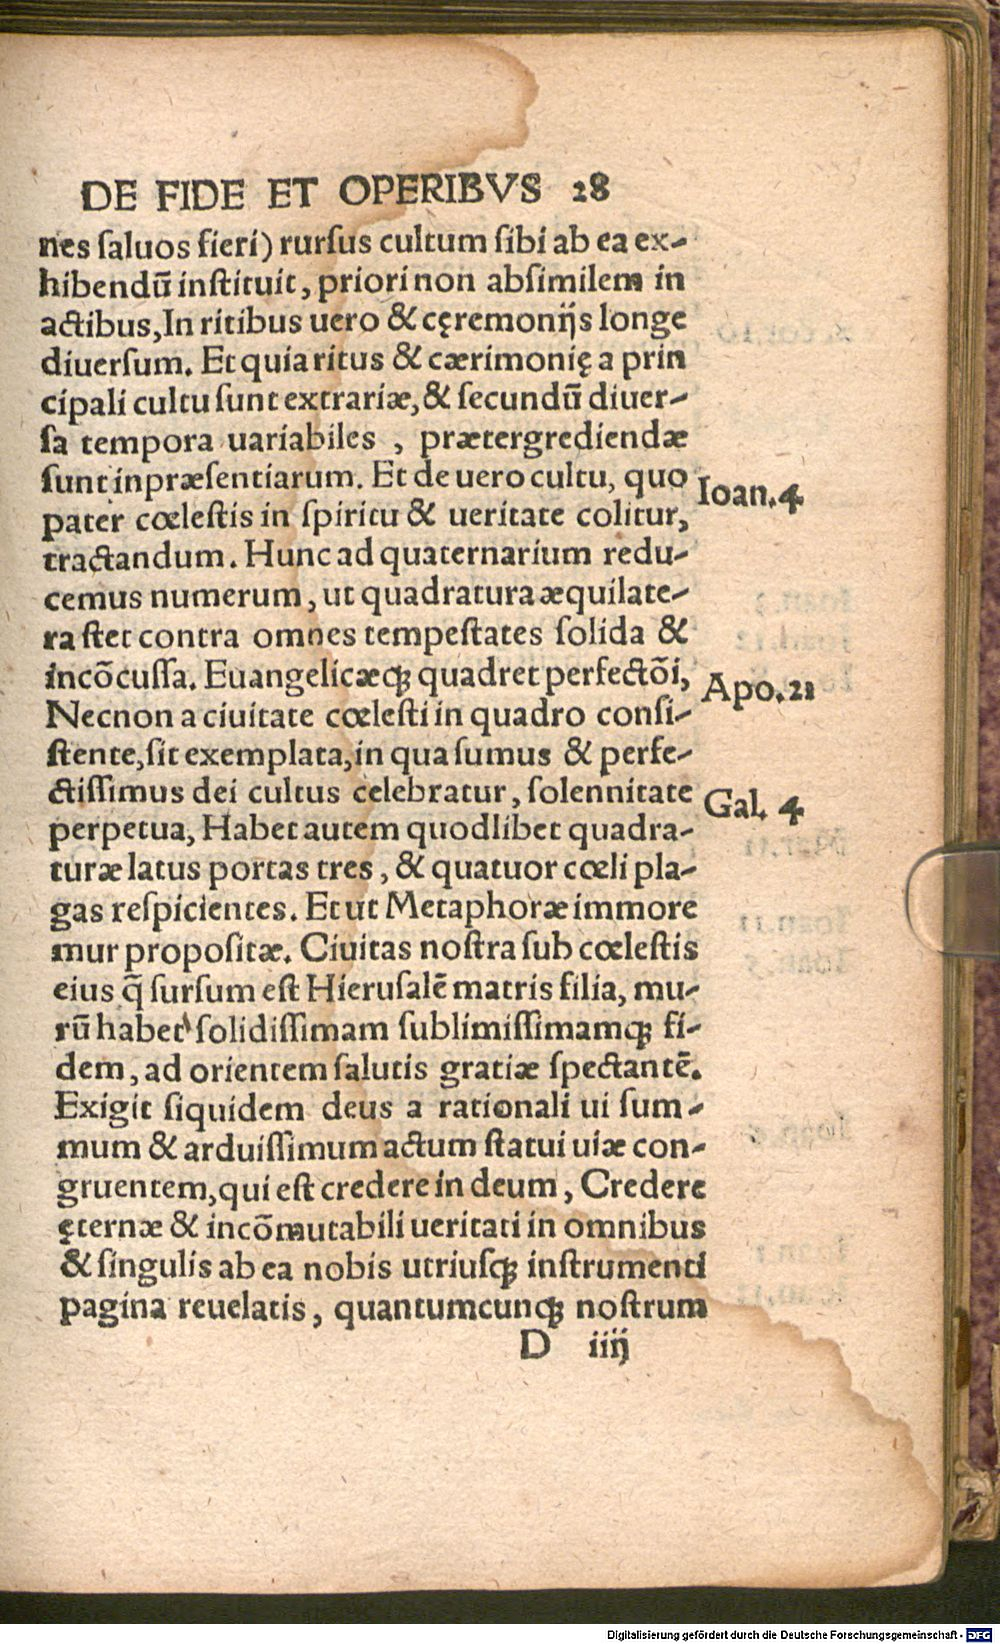 DE FIDE ET OPERIBVS 28
nes ſaluos fieri) rurſus cultum ſibi ab ea ex-
hibendū inſtituit, priori non abſimilem in
actibus, In ritibus uero & cęremonijs longe
diuerſum. Et quia ritus & cærimonię a prin
cipali cultu ſunt extrariæ, & ſecundū diuer-
ſa tempora uariabiles, prætergrediendæ
ſunt inpræſentiarum. Et de uero cultu, quo
Ioan. 4
pater cœleſtis in ſpiritu & ueritate colitur,
tractandum. Hunc ad quaternarium redu-
cemus numerum, ut quadratura æquilate-
ra ſtet contra omnes tempeſtates ſolida &
incōcuſſa. Euangelicæqꝫ quadret perfectōi,
Apo. 21
Necnon a ciuitate cœleſti in quadro conſi-
ſtente, ſit exemplata, in qua ſumus & perfe-
ctiſſimus dei cultus celebratur, ſolennitate
Gal. 4
perpetua, Habet autem quodlibet quadra-
turæ latus portas tres, & quatuor cœli pla-
gas reſpicientes. Et ut Metaphoræ immore
mur propoſitæ. Ciuitas noſtra ſub cœleſtis
eius q̄ ſurſum eſt Hieruſalē matris filia, mu-
rū habet ſolidiſſimam ſublimiſſimamqꝫ fi-
dem, ad orientem ſalutis gratiæ ſpectantē.
Exigit ſiquidem deus a rationali ui ſum-
mum & arduiſſimum actum ſtatui uiæ con-
gruentem, qui eſt credere in deum, Credere
ęternæ & incōmutabili ueritati in omnibus
& ſingulis ab ea nobis utriuſqꝫ inſtrumenti
pagina reuelatis, quantumcunqꝫ noſtrum
D iiij
Digitalisierung gefördert durch die Deutsche Forschungsgemeinschaft - DFG